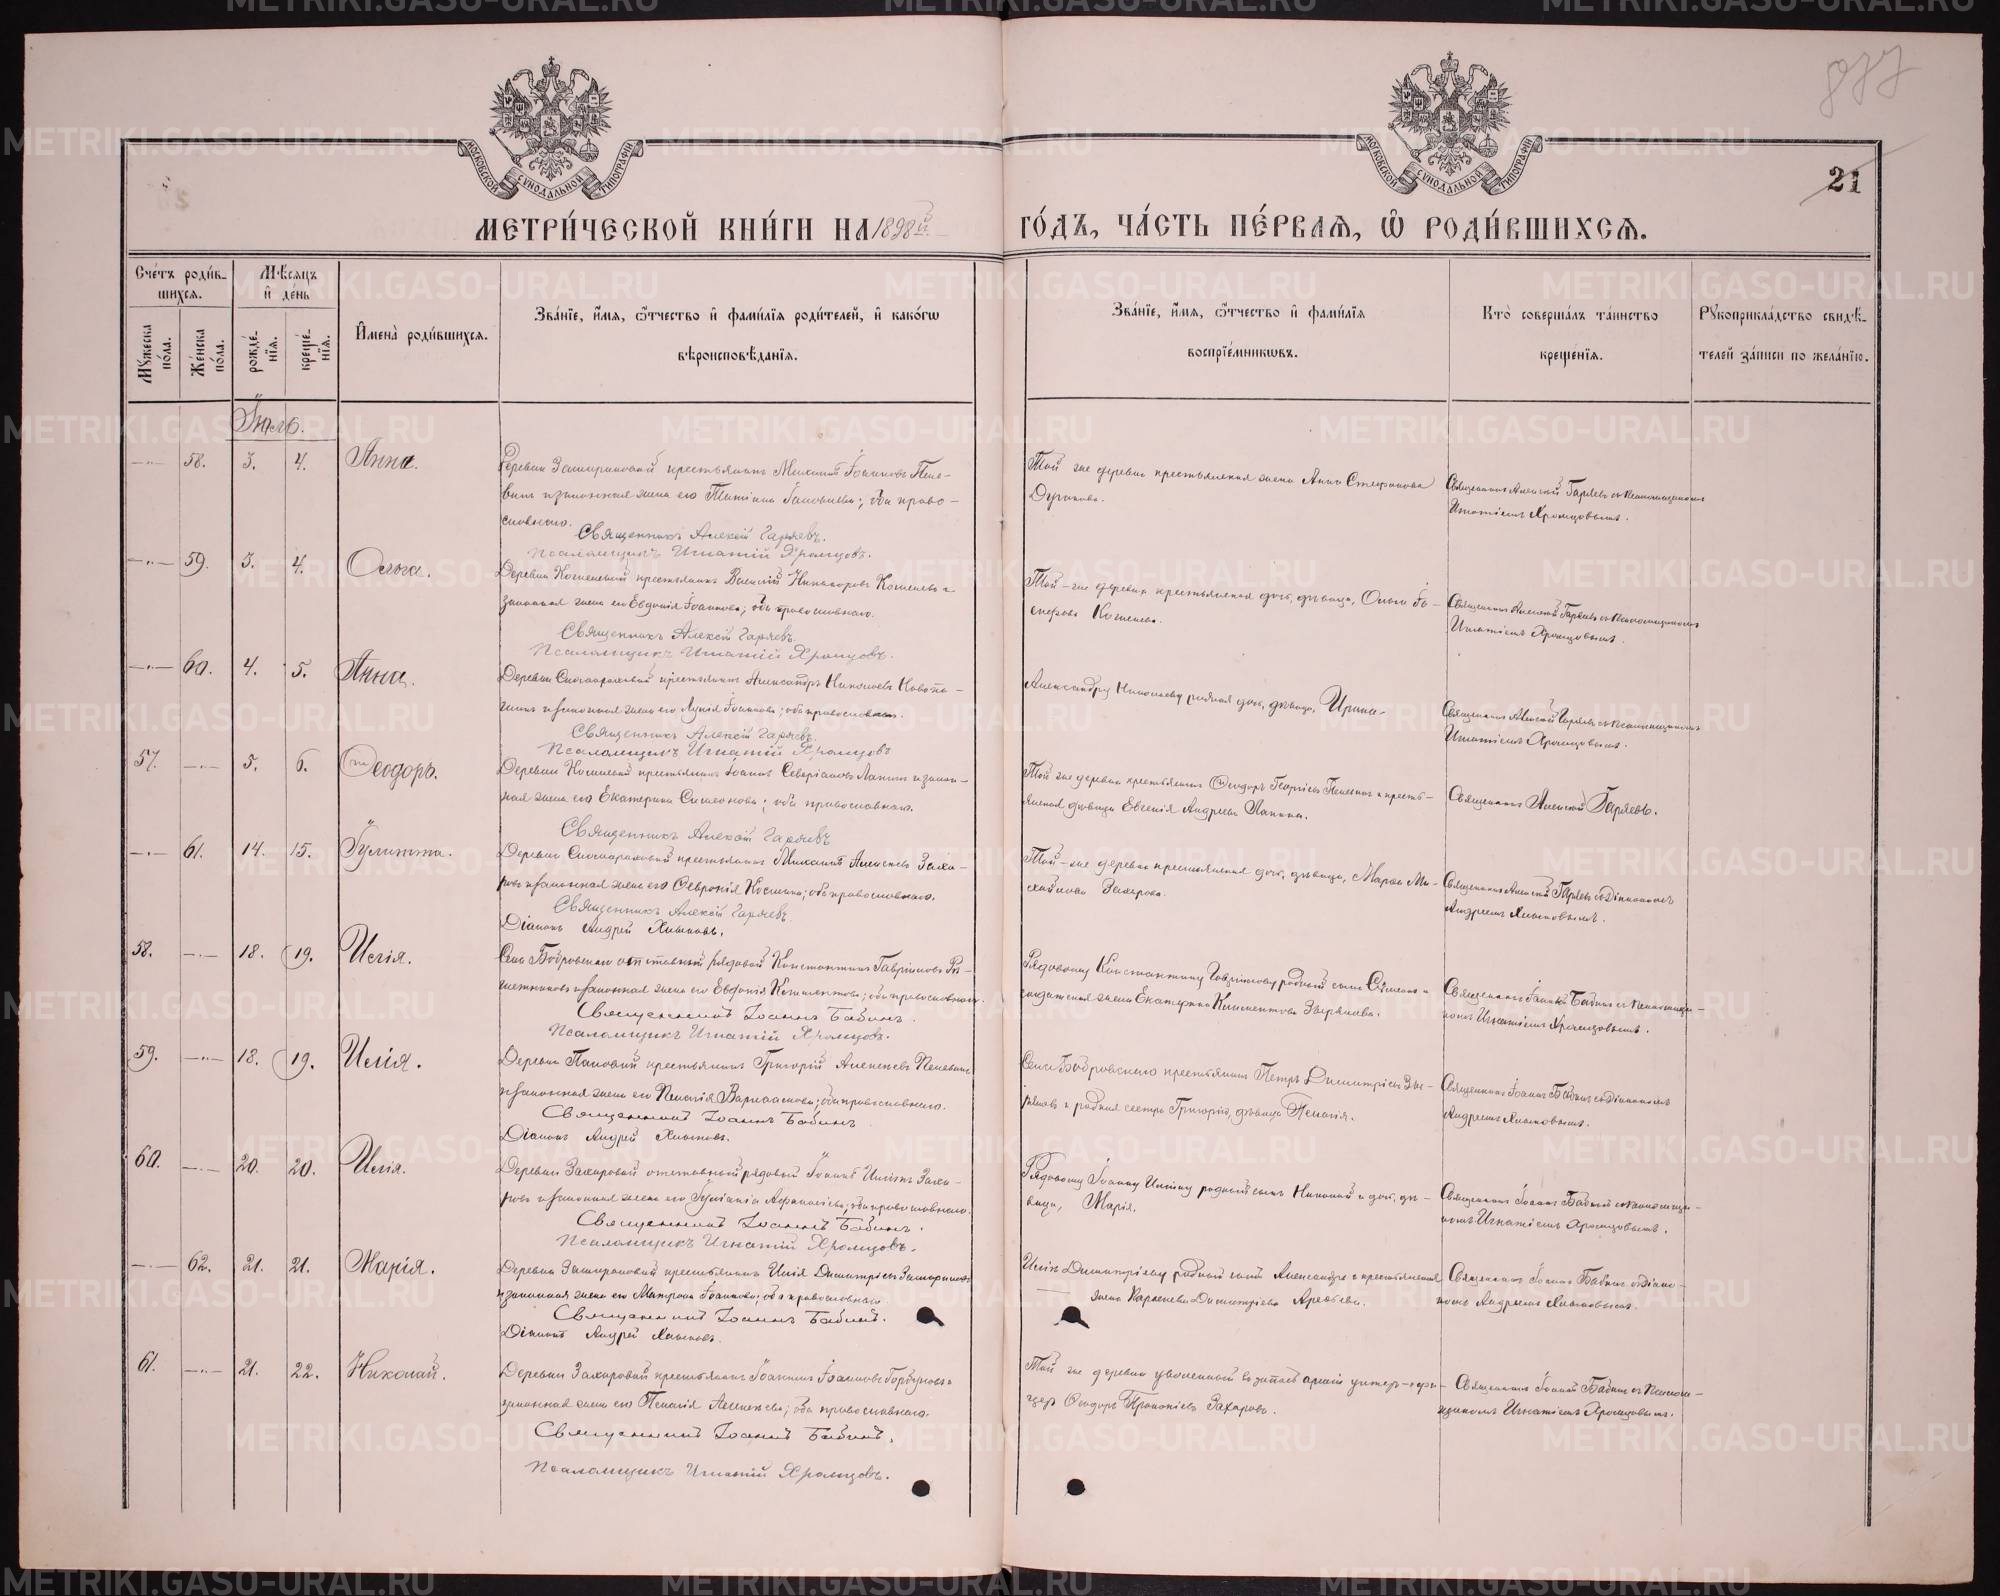 877
21
МОСКОВСКОЙ СѴНОДАЛЬНОЙ ТИПОГРАФІИ
МОСКОВСКОЙ СѴНОДАЛЬНОЙ ТИПОГРАФІИ
МЕТРИ́ЧЕСКОЙ КНИ́ГИ НА 1898й.
ГО́ДЪ, ЧА́СТЬ ПЕ́РВАЯ, Ѡ҆ РОДИ́ВШИХСЯ.
Сче́тъ роди́в-
шихся.
Мѣ́сяцъ
и҆ де́нь
Мꙋ́жеска по́ла.
Же́нска по́ла.
рожде́-нїя.
креще́-нїя.
И҆мена̀ роди́вшихся.
Зва́нїе, и҆́мя, ѻ҆́тчество и҆ фами́лїя роди́телей, и҆ како́гѡ
вѣроисповѣ́данїя.
Зва́нїе, и҆́мя, ѻ҆́тчество и҆ фами́лїя
воспрїе́мникѡвъ.
Кто̀ соверша́лъ та́инство
креще́нїя.
Рꙋкоприкла́дство свидѣ́-
телей за́писи по жела́нїю.
Іюль.
58. 3. 4. Анна.
Деревни крестьянинъ Михаилъ Іоанновъ Пепе-
винъ и законная жена его Татіана; оба право-
славнаго.
Священникъ Алексій Гаряевъ.
Псаломщикъ Игнатій Хромцовъ.
Той же деревни крестьянская жена Анна Стефанова
Священникъ Алексій Гаряевъ съ псаломщикомъ
Игнатіемъ Хромцовымъ.
59. 3. 4. Ольга.
Деревни крестьянинъ Василій Никифоровъ и
законная жена его Евдокія Іоаннова; оба православнаго.
Священникъ Алексій Гаряевъ.
Псаломщикъ Игнатій Хромцовъ.
Той-же деревни крестьянская дочь, дѣвица, Ольга
Священникъ Алексій Гаряевъ съ псаломщикомъ
Игнатіемъ Хромцовымъ.
60. 4. 5. Анна.
Деревни крестьянинъ Александръ Николаевъ
и законная жена его Іоаннова; оба православнаго.
Священникъ Алексій Гаряевъ.
Псаломщикъ Игнатій Хромцовъ
Александру Николаеву родная дочь, дѣвица, Ирина.
Священникъ Алексій Гаряевъ съ псаломщикомъ
Игнатіемъ Хромцовымъ.
57. 5. 6. Ѳеодоръ.
Деревни крестьянинъ Іоаннъ Северіановъ Лапинъ и закон-
ная жена его Екатерина Симеонова; оба православнаго.
Священникъ Алексій Гаряевъ
Той же деревни крестьянинъ Ѳеодоръ Георгіевъ и кресть-
янская дѣвица Евгенія Андреева Лапина.
Священникъ Алексій Гаряевъ.
61. 14. 15. Іулитта.
Деревни крестьянинъ Михаилъ Алексѣевъ Заха-
ровъ и законная жена его Ѳевронія Космина; оба православнаго.
Священникъ Алексій Гаряевъ.
Діаконъ Андрей Хлыновъ.
Той-же деревни крестьянская дочь, дѣвица, Марѳа Ми-
хайлова Захарова.
Священникъ Алексій Гаряевъ съ діакономъ
Андреемъ Хлыновымъ.
58. 18. 19. Илія.
Села Бобровскаго отставный рядовой Константинъ Гавріиловъ Рѣ-
шетниковъ и законная жена его Евдокія Климентова; оба православнаго.
Священникъ Іоаннъ Бабинъ.
Псаломщикъ Игнатій Хромцовъ.
Рядовому Константину Гавріилову родный сынъ и
солдатская жена Екатерина Климентова Звѣрякова.
Священникъ Іоаннъ Бабинъ съ псаломщи-
комъ Игнатіемъ Хромцовымъ.
59. 18. 19. Илія.
Деревни крестьянинъ Григорій Алексѣевъ
и законная жена его Пелагія Варлаамова; оба православнаго.
Священникъ Іоаннъ Бабинъ
Діаконъ Андрей Хлыновъ.
Села Бобровскаго крестьянинъ Петръ Димитріевъ Звѣ-
ряковъ и родная сестра Григорія, дѣвица Пелагія.
Священникъ Іоаннъ Бабинъ съ діакономъ
Андреемъ Хлыновымъ.
60. 20. 20. Илія.
Деревни Захаровой отставный рядовой Іоаннъ Илiинъ Заха-
ровъ и законная жена его Іуліанія Аѳанасіева; оба православнаго.
Священникъ Іоаннъ Бабинъ.
Псаломщикъ Игнатій Хромцовъ.
Рядовому Іоанну Иліину родный сынъ Николай и дочь, дѣ-
вица, Марія.
Священникъ Іоаннъ Бабинъ съ псаломщи-
комъ Игнатіемъ Хромцовымъ.
62. 21. 21. Марія.
Деревни крестьянинъ Илія Димитріевъ
и законная жена его Матрона Іоаннова; оба православнаго.
Священникъ Іоаннъ Бабинъ.
Діаконъ Андрей Хлыновъ.
Иліи Димитріеву родный сынъ Александръ и крестьянская
жена Димитріева Арефьева.
Священникъ Іоаннъ Бабинъ съ діако-
номъ Андреемъ Хлыновымъ.
61. 21. 22. Николай.
Деревни Захаровой крестьянинъ Іоаннъ Іоанновъ Горбуновъ и
законная жена его Пелагія Алексѣева; оба православнаго.
Священникъ Іоаннъ Бабинъ.
Псаломщикъ Игнатій Хромцовъ.
Той же деревни уволенный въ запасъ арміи унтеръ-офи-
церъ Ѳеодоръ Прокопіевъ Захаровъ.
Священникъ Іоаннъ Бабинъ съ псалом-
щикомъ Игнатіемъ Хромцовымъ.
METRIKI.GASO-URAL.RU